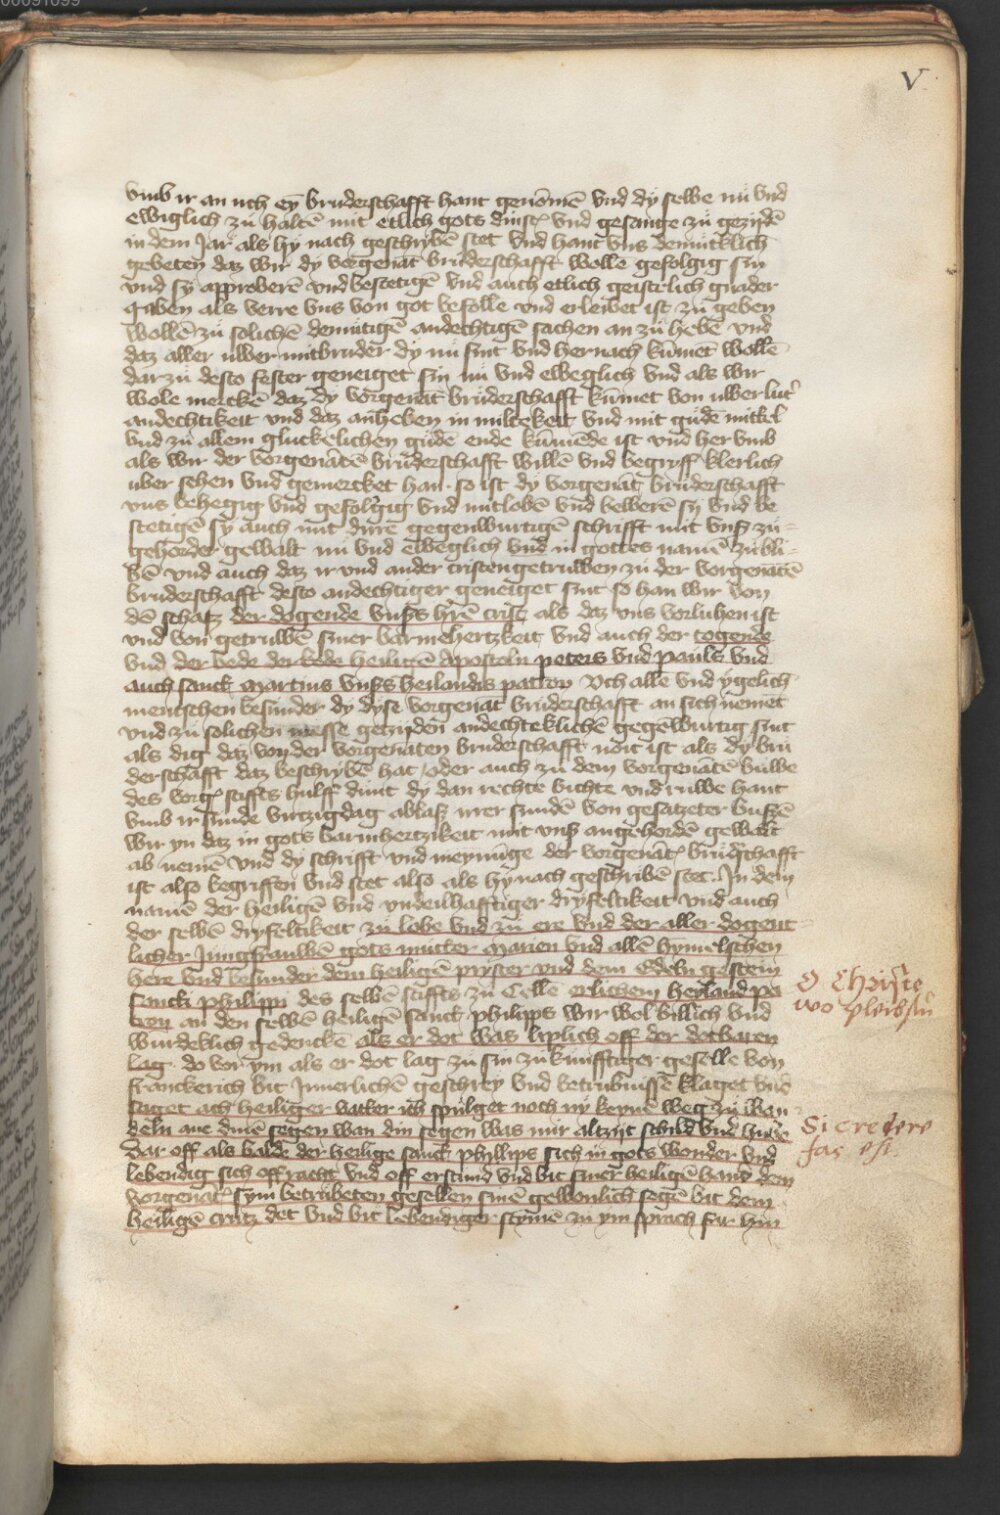 V
vmb ir an uch ey bruderschafft hant genomē vnd dy selbe nu vnd
ewiglich zu haltē mit etlich gots dinst vnd gesange zu gezydē
in dem Jar als hy nach geschribē stet vnd hant vns demutklich
gebeten daz wir dy vorgenāt bruderschafft wolle gefolgig sin
vnd sy approberē vnd bestetigē vnd auch etlich geistlich gnader
gaben als verre vns von got befolle vnd erleibet ist zu geben
wollē zu solichē demutigē andechtigē sachen an zu hebē vnd
daz aller uwer mitbruder dy nu sint vnd hernach kūmet wollē
dar zu desto fester geneiget sin nu vnd eweglich vnd als wir
wole merckē daz dy vorgenāt bruderschafft kūmet von uwer lut
andechtikeit vnd daz anheben in miltekeit vnd mit gudē mittel
vnd zu allem gluckelichen gudē ende kūmēde ist vnd her vmb
als wir der vorgenātē bruderschafft willē vnd begryff klerlich
uber sehen vnd gemercket han so ist dy vorgenāt bruderschafft
vns behegig vnd gefolgig vnd mitlobē vnd bewerē sy vnd be
stetigē sy auch mit dirre gegenwurtigē schrifft mit vnß zu
gehorder gewalt nu vnd eweglich vnd in gottes namē zu bli
bē vnd auch daz ir vnd ander cristengetruwen zu der vorgenātē
bruderschafft desto andechtiger geneiget sint so han wir von
dē schatz der dogende vnßs hrē crist als daz vns vorluhen ist
vnd von getruwē siner barmehertzkeit vnd auch der togende
vnd der bede der bede heiligē Apostoln peters vnd pauls vnd
auch sanck martins vnßs heilandis patron Vch alle vnd ygelich
mentschen besunder dy dyse vorgenāt bruderschafft an sich nemet
vnd zu solichen messe gezyden andechteklichē gegēwurtig sint
als dig daz von der vorgenaten bruderschafft noit ist als dy bru
derschafft daz beschribē hat oder auch zu dem vorgenātē buwe
des vorg stiffts hulff dunt dy dan rechte bichte vnd ruwe hant
vmb ir sunde virtzig dag ablasz irer sunden von gesatzeter buszē
wir yn daz in gots barmhertzikeit mit vnß angehordē gewalt
ab nemē vnd dy schrifft vnd meynūge der vorgenāt bruderschafft
ist also begriffen vnd stet also als hy nach geschribē stet. In dem
namē der heiligē vnd vndeilhafftiger dryfeltikeit vnd auch
der selbē dryfeltikeit zu lobe vnd zu ere vnd der aller dogent
licher Jungfrauwē gots mutter Marien vnd allē hymelschen
here vnd besunder dem heiligē pryster vnd dem Edeln gestein
sanck philippi des selbē stiffts zu Celle erlichem heyland pa
tron an den selbē heiligē sanct philipps wir wol billich vnd
wurdeklich gedencke als er dot was liplich off der dotbaren
lag do vor ym als er dot lag zu sin zukunfftiger geselle von
franckerich bit Innerlichē geschrey vnd betrubnissē klaget vnd
saget ach heiliger vatter ich spulget noch ny keynē weg zu wan
deln ane dinē segen wan din segen was mir altzyt schild vnd hude
Dar off als balde der heilige sanck phillips sich in gots wonder vnd
lebendig sich off racht vnd off erstund vnd bit siner heiligē hand dem
vorgenāt sym betrubeten gesellen sinē gewonlich segē bit dem
heiligē crutz det vnd bit lebendiger stymē zu ym sprach far hin
O Christe
wo pleibstu
Si credere
fas est.